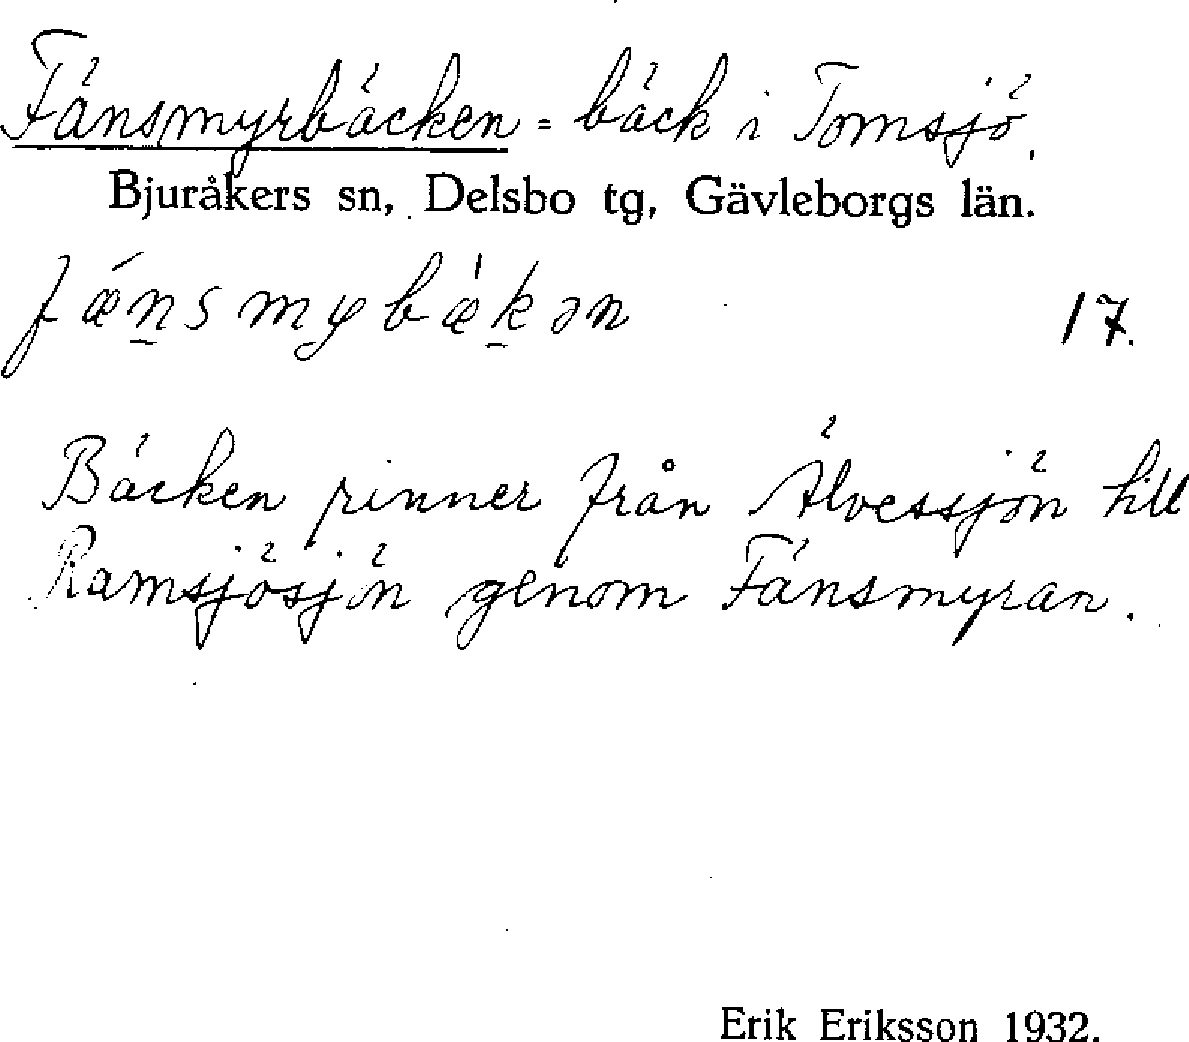 Fänsmyrbäcken = bäck i Tomsjö.
Bjuråkers sn, Delsbo tg, Gävleborgs län.
fǽnsmybæ̀kən 17.
Bäcken rinner från Älvessjön till
Ramsjösjön genom Fänsmyran.
Erik Eriksson 1932.